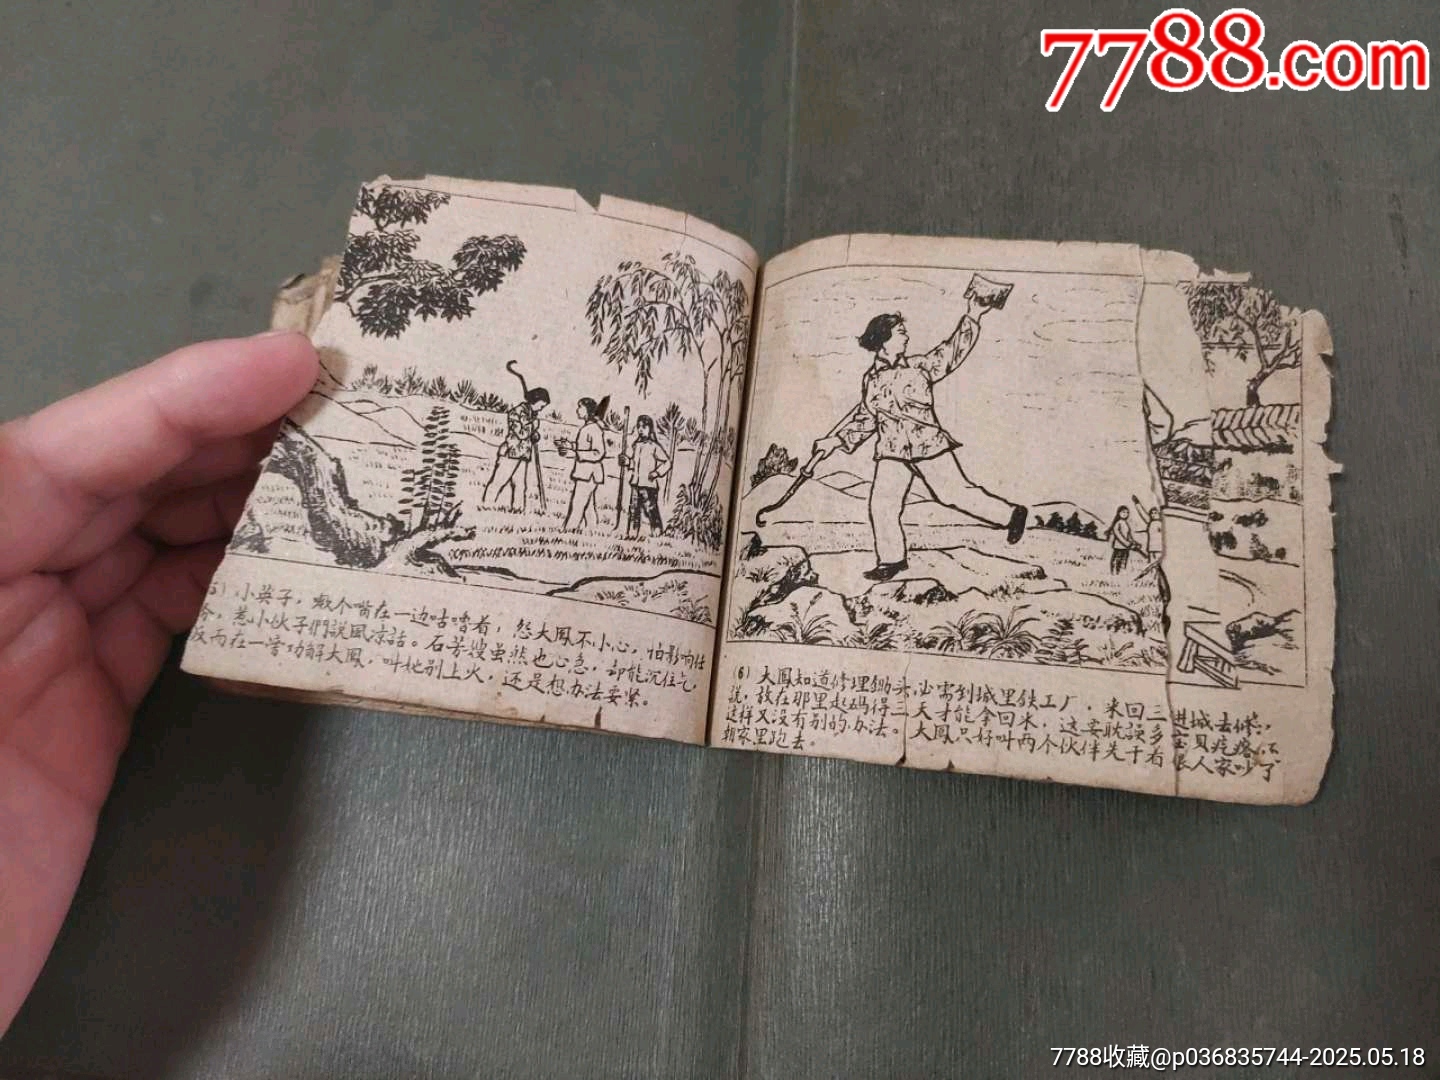 7788.com
5）小英子，噘个嘴在一边咕噜着，怨大鳳不小心，怕影响任
务，惹小伙子們說風凉話。石芳嫂虽然也心急，却能沉住气，
反而在一旁劝解大鳳，叫她别上火，还是想办法要紧。
(6) 大鳳知道修理鋤头，必需到城里铁工厂，来回三
說，放在那里起碼得三天才能拿回来，这要耽誤多
这样又没有别的办法。大鳳只好叫两个伙伴先干着
朝家里跑去。
进城去修
宝貝疙瘩
人家吵了
7788收藏@p036835744-2025.05.18